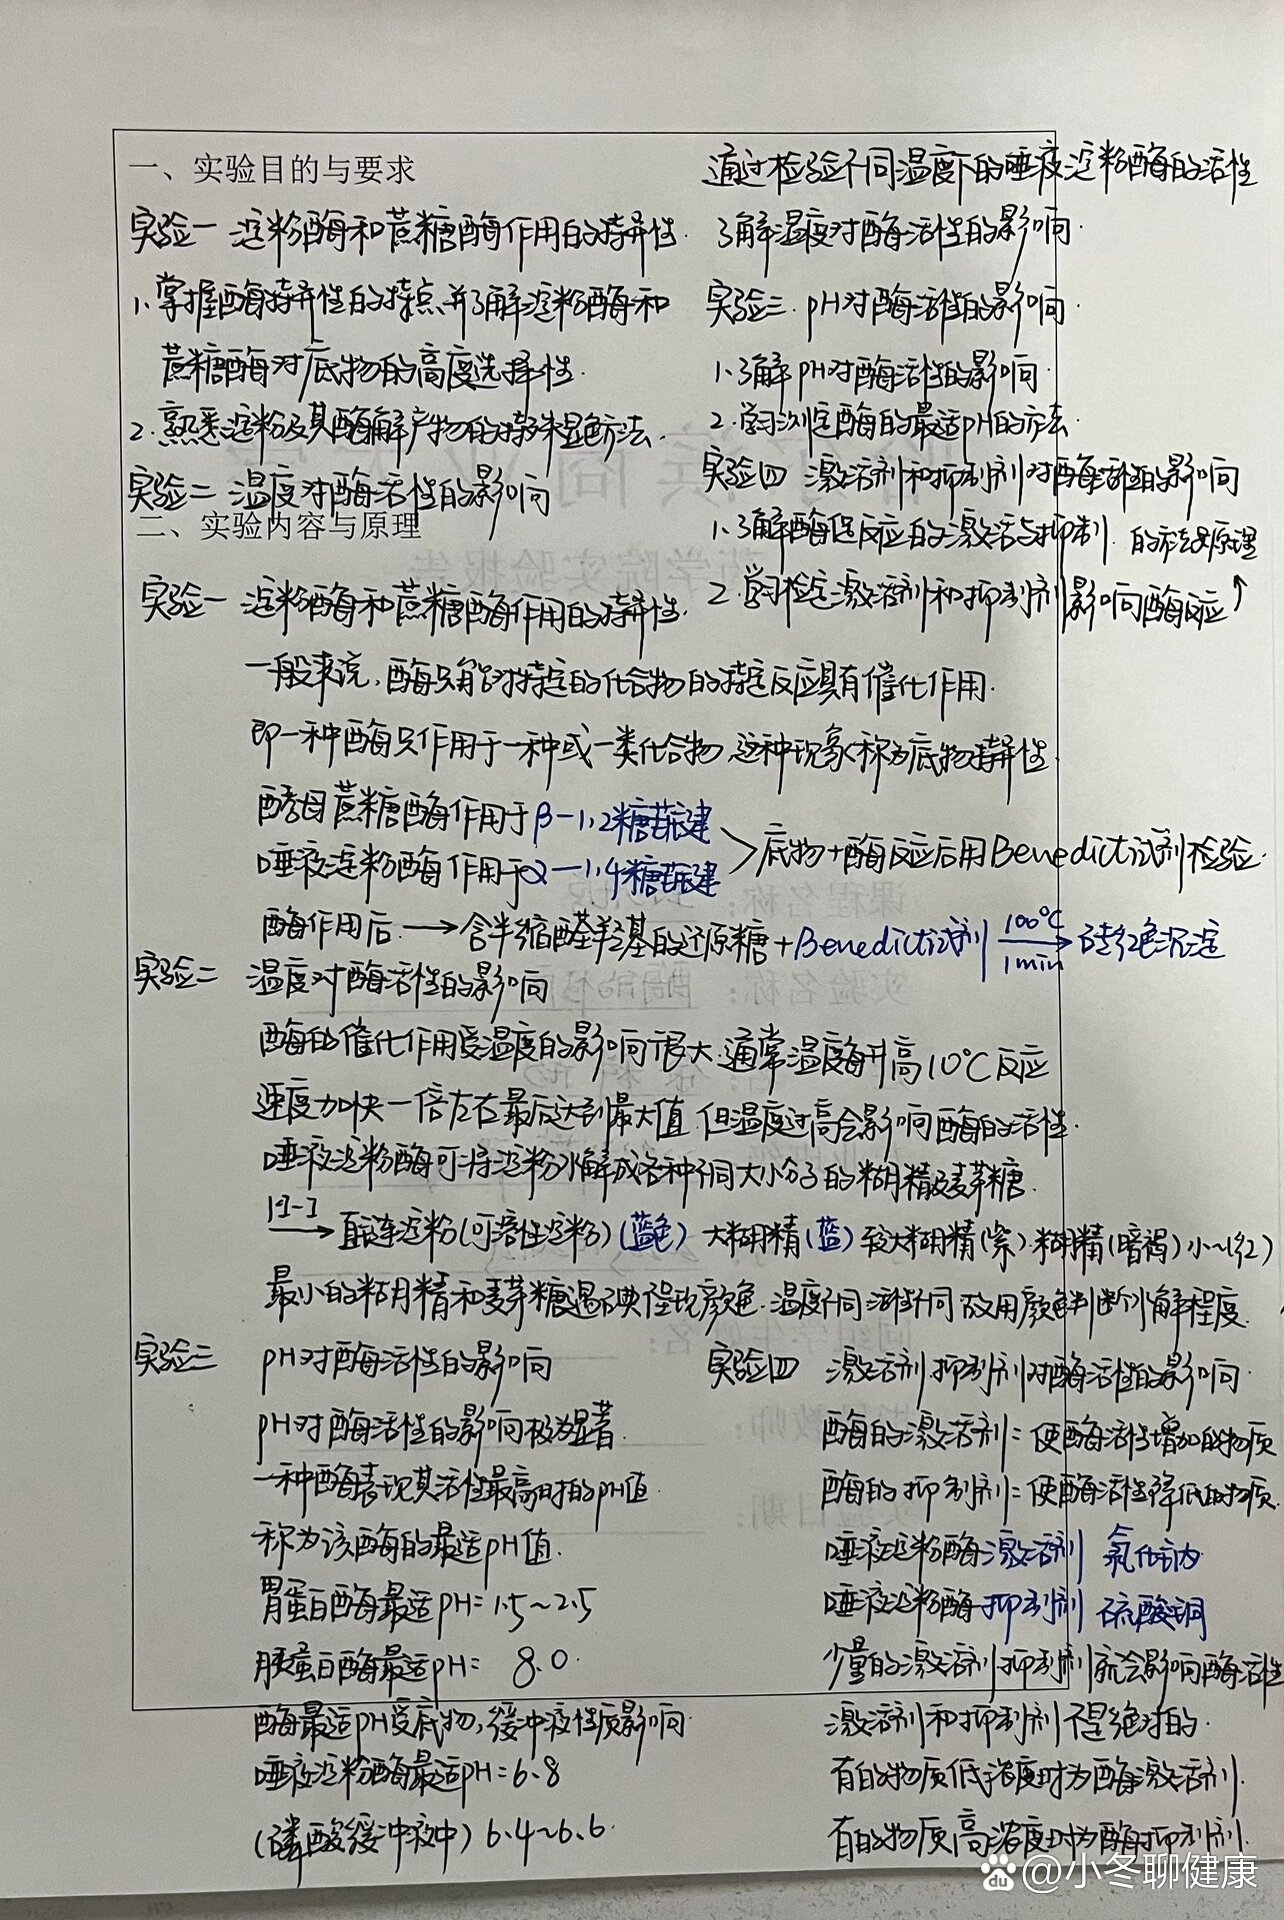 一、实验目的与要求
实验一 淀粉酶和蔗糖酶作用的特异性.
1.掌握酶特异性的特点,并了解淀粉酶和
蔗糖酶对底物的高度选择性.
2.熟悉淀粉及其酶解产物的特殊显色方法.
实验二 温度对酶活性的影响
通过检验不同温度下的唾液淀粉酶的活性
了解温度对酶活性的影响.
实验三.pH对酶活性的影响
1.了解pH对酶活性的影响.
2.学习测定酶的最适pH的方法.
实验四 激活剂和抑制剂对酶活性的影响
1.了解酶促反应的激活与抑制.
2.学习检定激活剂和抑制剂影响酶反应↑
的方法及原理
二、实验内容与原理
实验一 淀粉酶和蔗糖酶作用的特异性.
一般来说,酶只能对特定的化合物的特定反应具有催化作用.
即一种酶只作用于一种或一类化合物,这种现象称为底物特异性.
酵母蔗糖酶作用于β-1,2糖苷键
唾液淀粉酶作用于α-1,4糖苷键
>底物+酶反应后用Benedict试剂检验.
酶作用后→含半缩醛羟基的还原糖+Benedict试剂 100℃ 1min → 砖红色沉淀
实验二 温度对酶活性的影响
酶的催化作用受温度的影响很大.通常温度每升高10℃反应
速度加快一倍左右最后达到最大值.但温度过高会影响酶的活性.
唾液淀粉酶可将淀粉水解成各种不同大小分子的糊精及麦芽糖.
KI-I → 直链淀粉(可溶性淀粉)(蓝色) 大糊精(蓝) 较大糊精(紫).糊精(暗褐) 小~(红)
最小的糊精和麦芽糖遇碘不呈现颜色.温度不同活性不同故用颜色判断水解程度.
实验三 pH对酶活性的影响
pH对酶活性的影响极为显著.
一种酶表现其活性最高时的pH值
称为该酶的最适pH值.
胃蛋白酶最适pH=1.5~2.5
胰蛋白酶最适pH= 8.0.
酶最适pH受底物,缓冲液性质影响.
唾液淀粉酶最适pH=6.8
(磷酸缓冲液中) 6.4~6.6.
实验四 激活剂抑制剂对酶活性的影响.
酶的激活剂:使酶活性增加的物质
酶的抑制剂:使酶活性降低的物质.
唾液淀粉酶激活剂 氯化钠
唾液淀粉酶抑制剂 硫酸铜
少量的激活剂抑制剂就会影响酶活性
激活剂和抑制剂不是绝对的.
有的物质低浓度时为酶激活剂.
有的物质高浓度时为酶抑制剂.
@小冬聊健康